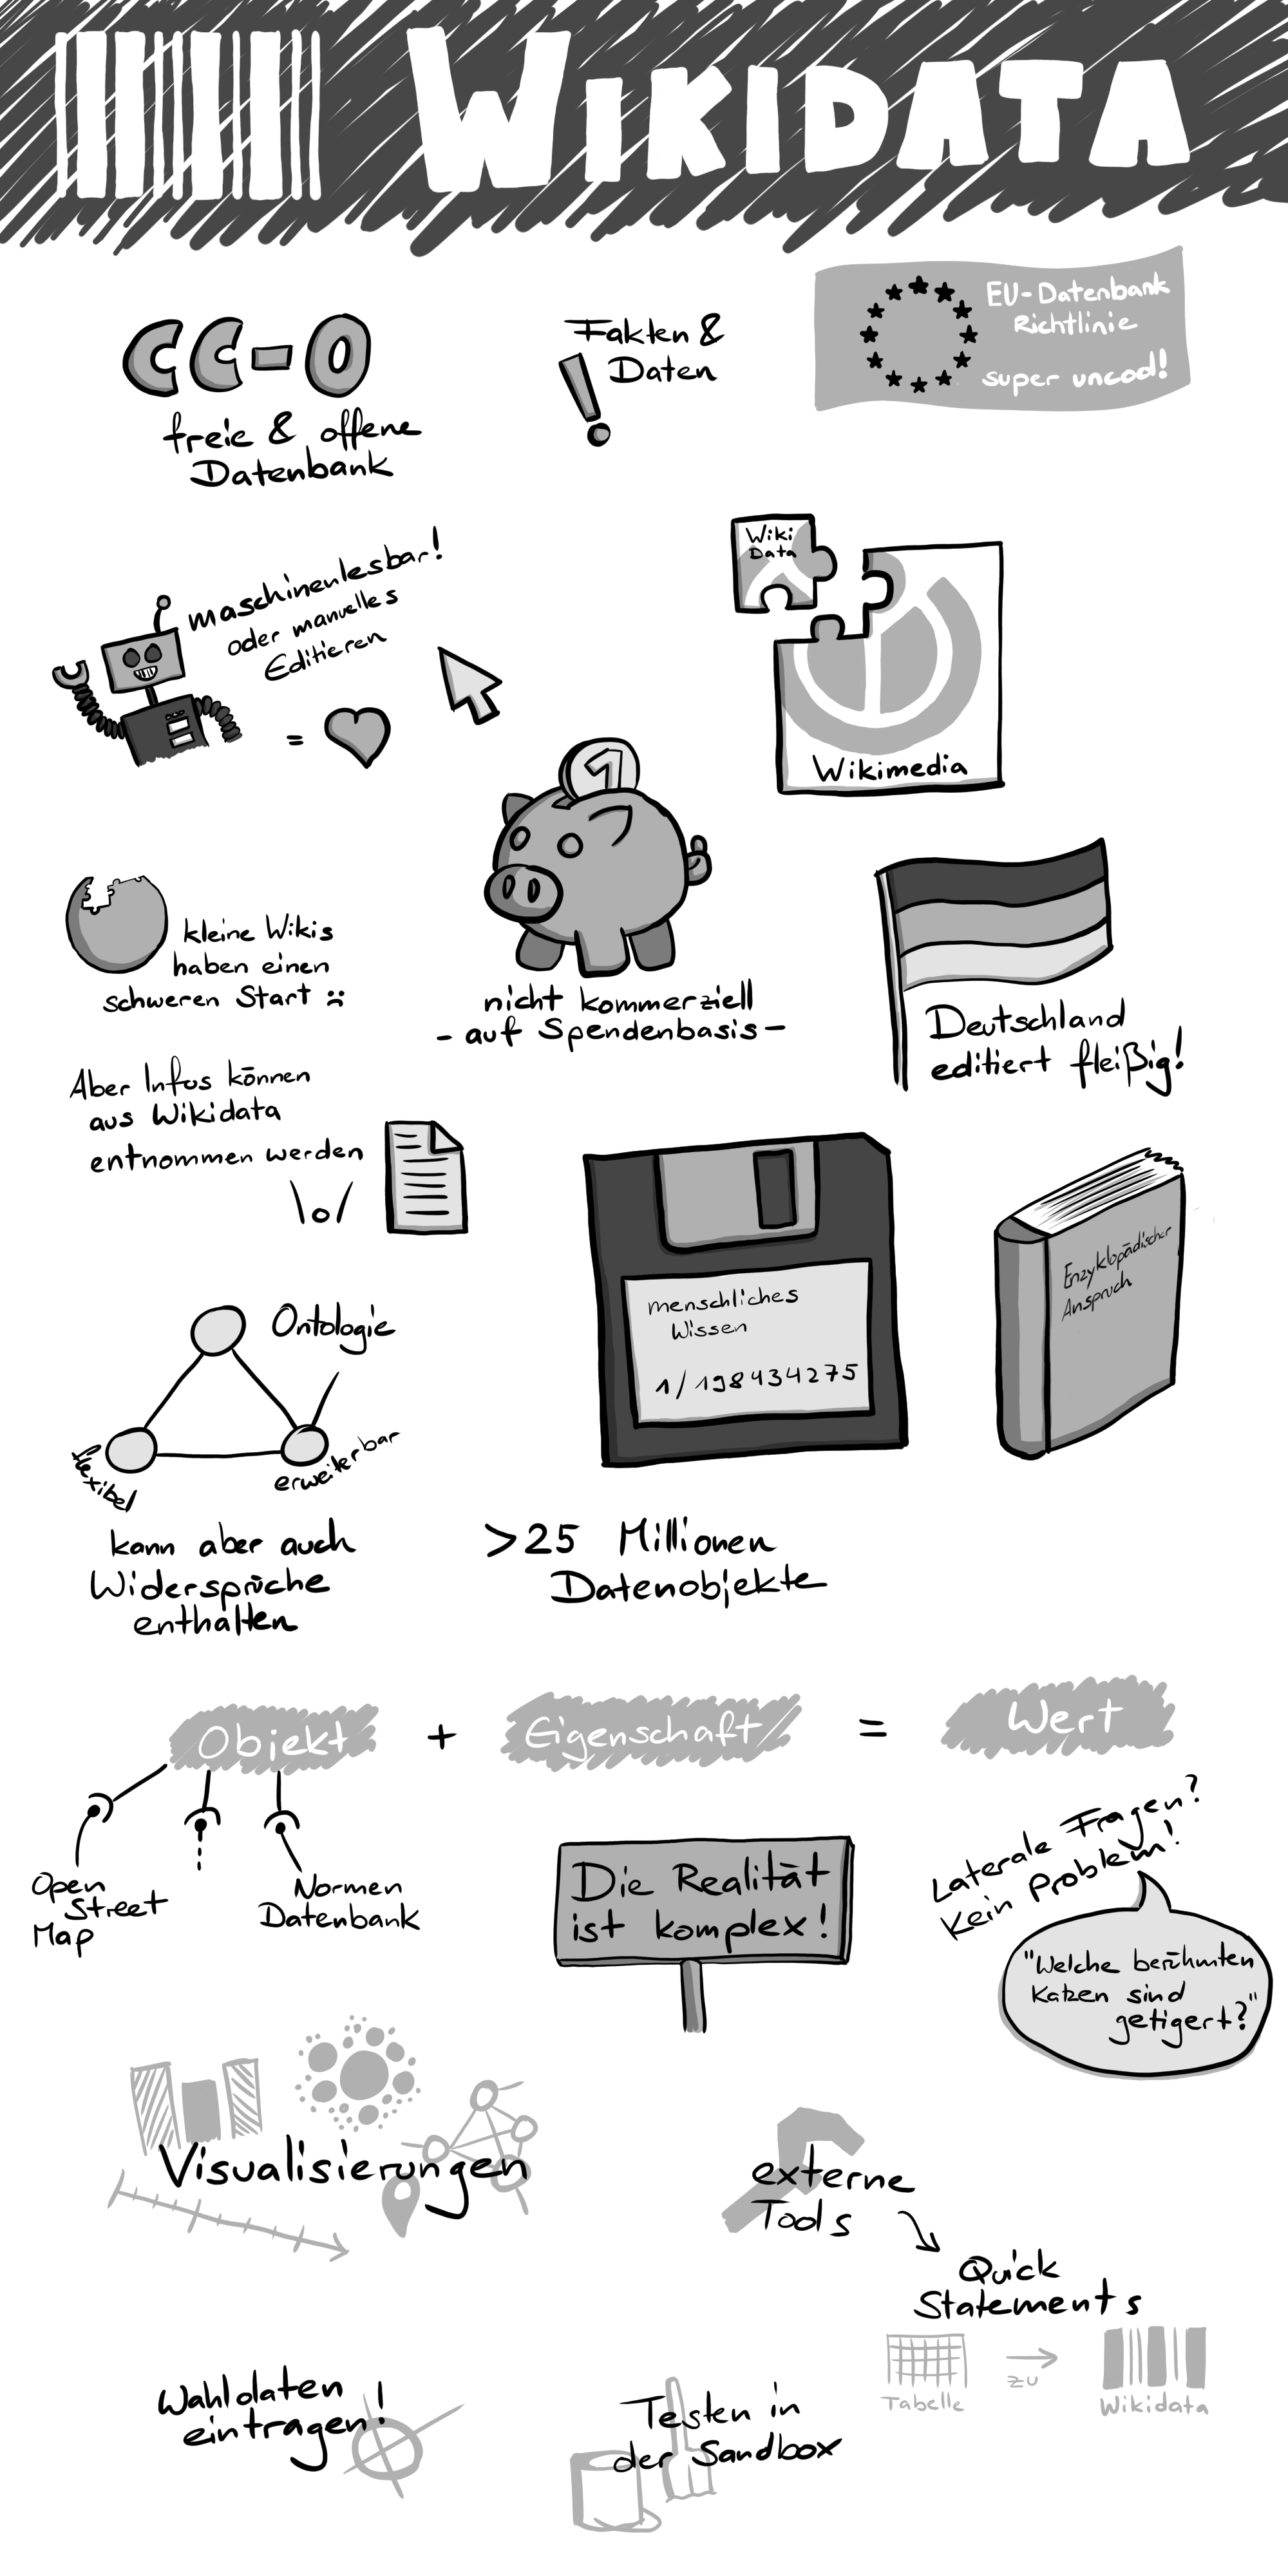 WIKIDATA
CC-0
freie & offene
Datenbank
Fakten &
Daten
EU-Datenbank
Richtlinie
super uncool!
maschinenlesbar!
oder manuelles
Editieren
=
Wiki
Data
Wikimedia
1
kleine Wikis
haben einen
schweren Start :(
nicht kommerziell
- auf Spendenbasis -
Deutschland
editiert fleißig!
Aber Infos können
aus Wikidata
entnommen werden
\o/
menschliches
Wissen
1/198434275
Enzyklopädischer
Anspruch
Ontologie
flexibel
erweiterbar
kann aber auch
Widersprüche
enthalten
>25 Millionen
Datenobjekte
Objekt + Eigenschaft = Wert
Open
Street
Map
Normen
Datenbank
Die Realität
ist komplex!
Laterale Fragen?
Kein Problem!
"Welche berühmten
Katzen sind
getigert?"
Visualisierungen
externe
Tools
Quick
Statements
Tabelle
zu
Wikidata
Wahldaten
eintragen!
Testen in
der Sandbox